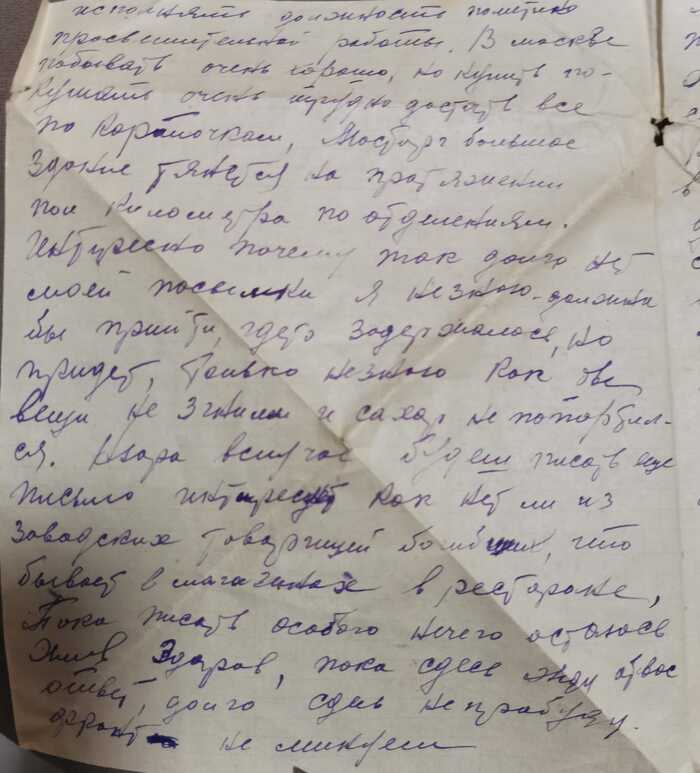 исполнять должность политико
просветительной работы. В москве
побывать очень хорошо, но купить по-
кушать очень трудно достать все
по карточкам, Мосторг большое
здание тянется на протяжении
пол километра по отделениям.
Интересно почему так долго нет
моей посылки я незнаю. должна
бы прийти, где то задержалось, но
придет, только незнаю как
вещи не згнили и сахар не попортил-
ся. Клара вслучае будеш писать еще
письмо интересует как нет ли из
заводских товарищей что
бывает в магазинах в ресторане,
Пока писать особого нечего остаюсь
Жив Здоров, пока сдесь жду отвас
ответ, долго сдесь непробуду.
фронт не минуем